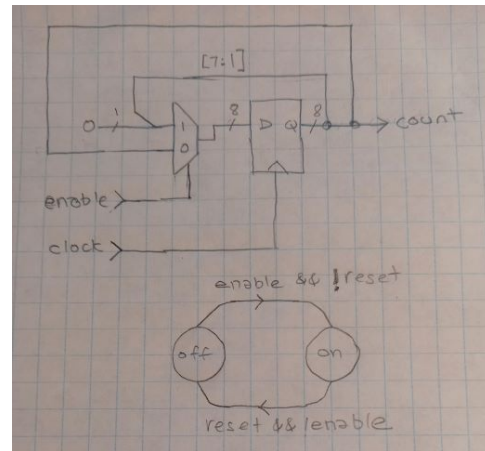 [7:1]
1
8
8
0
1
D
Q
count
0
enable
clock
enable && !reset
off
on
reset && !enable